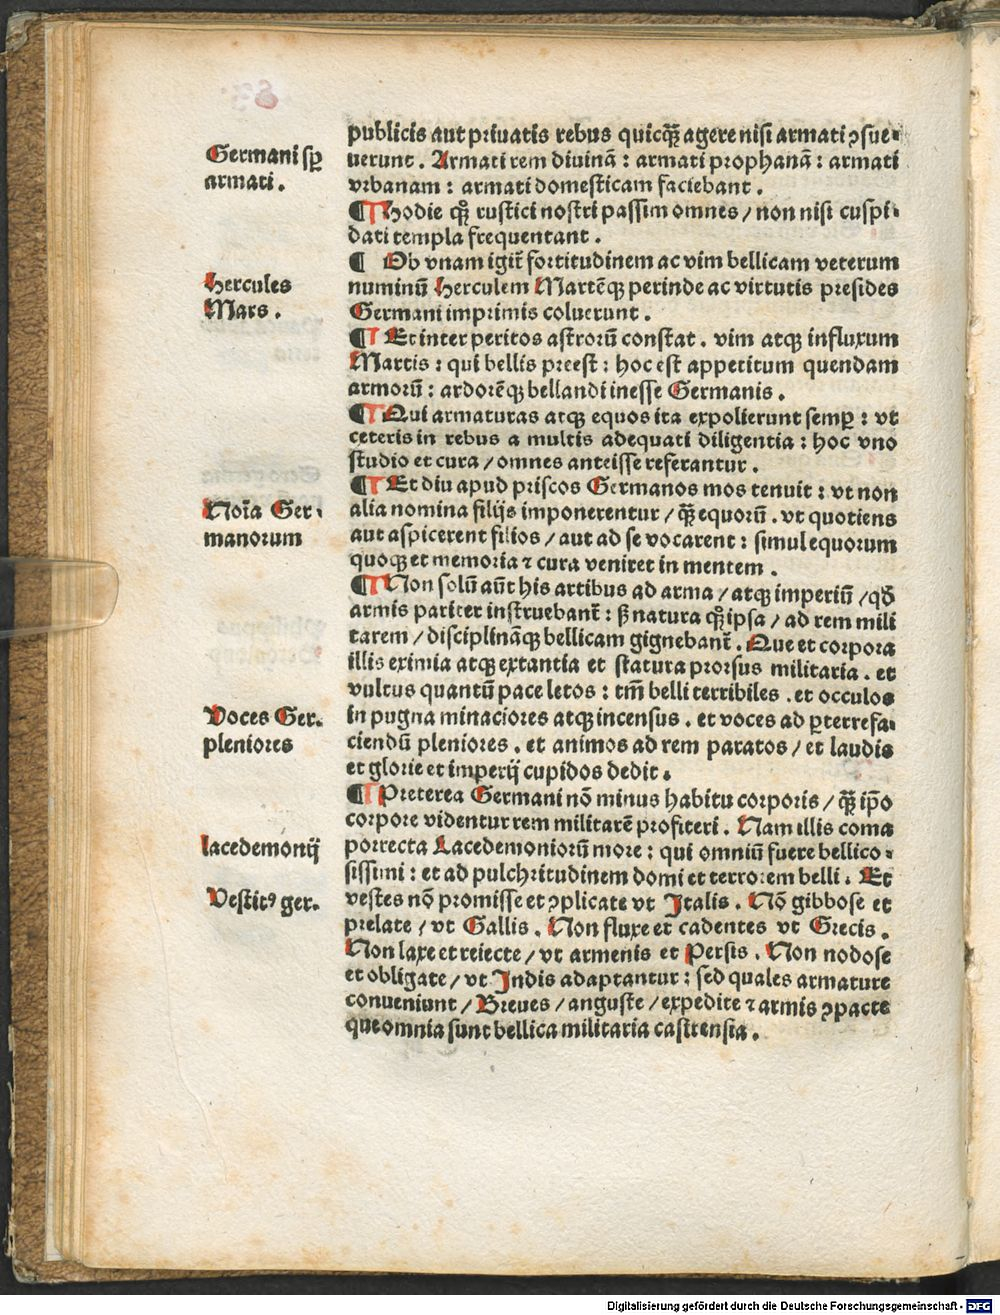 publicis aut priuatis rebus quicq̃ agere nisi armati ꝯsue⸗
uerunt . Armati rem diuinã : armati prophanã : armati
vrbanam : armati domesticam faciebant .
¶ Hodie qꝫ rustici nostri passim omnes / non nisi cuspi⸗
dati templa frequentant .
¶ Ob vnam igit̃ fortitudinem ac vim bellicam veterum
numinũ Herculem Martẽqꝫ perinde ac virtutis presides
Germani imprimis coluerunt .
¶ Et inter peritos astrorũ constat . vim atqꝫ influxum
Martis : qui bellis preest : hoc est appetitum quendam
armorũ : ardorẽqꝫ bellandi inesse Germanis .
¶ Qui armaturas atqꝫ equos ita expolierunt semꝑ : vt
ceteris in rebus a multis adequati diligentia : hoc vno
studio et cura / omnes anteisse referantur .
¶ Et diu apud priscos Germanos mos tenuit : vt non
alia nomina filijs imponerentur / q̃ equorũ . vt quotiens
aut aspicerent filios / aut ad se vocarent : simul equorum
quoqꝫ et memoria ⁊ cura veniret in mentem .
¶ Non solũ aũt his artibus ad arma / atqꝫ imperiũ / qđ
armis pariter instruebant̃ : sꝫ natura qꝫ ipsa / ad rem mili
tarem / disciplinãqꝫ bellicam gignebant̃ . Que et corpora
illis eximia atqꝫ extantia et statura prorsus militaria . et
vultus quantũ pace letos : tm̃ belli terribiles . et occulos
in pugna minaciores atqꝫ incensus . et voces ad ꝑterrefa⸗
ciendũ pleniores . et animos ad rem paratos / et laudis
et glorie et imperij cupidos dedit .
¶ Preterea Germani nõ minus habitu corporis / q̃ ip̃o
corpore videntur rem militarẽ profiteri . Nam illis coma
porrecta Lacedemoniorũ more : qui omniũ fuere bellico⸗
sissimi : et ad pulchritudinem domi et terrorem belli . Et
vestes nõ promisse et ꝯplicate vt Italis . Nõ gibbose et
prelate / vt Gallis . Non fluxe et cadentes vt Grecis .
Non laxe et reiecte / vt armenis et Persis . Non nodose
et obligate / vt Indis adaptantur : sed quales armature
conueniunt / Breues / anguste / expedite ⁊ armis ꝯpacte
que omnia sunt bellica militaria castrensia .
Germani sꝑ
armati .
Hercules
Mars .
Noĩa Ger⸗
manorum
Voces Ger.
pleniores
lacedemonij
Vestitꝰ ger.
Digitalisierung gefördert durch die Deutsche Forschungsgemeinschaft - DFG